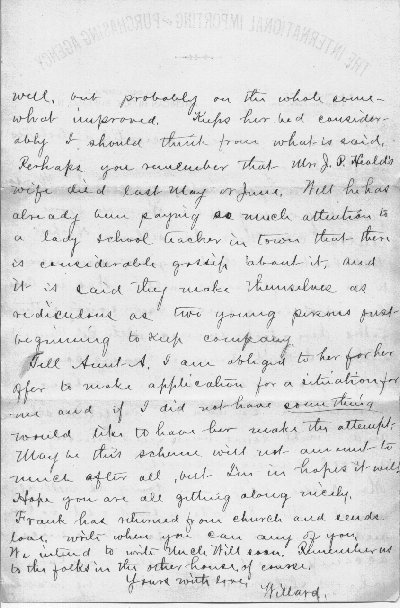 THE INTERNATIONAL IMPORTING AND PURCHASING AGENCY
well, but probably on the whole some-
what improved. Keeps her bed consider-
ably I should think from what is said.
Perhaps you remember that Mr. J. P. Heald's
wife died last May or June. Well he has
already been paying so much attention to
a lady school teacher in town that there
is considerable gossip about it, and
it is said they make themselves as
ridiculous as two young persons just
beginning to keep company
Tell Aunt A. I am obliged to her for her
offer to make application for a situation for
me and if I did not have something
would like to have her make the attempt.
May be this scheme will not amount to
much after all, but I'm in hopes it will.
Hope you are all getting along nicely.
Frank has returned from church and sends
love, write when you can any of you
We intend to write Uncle Will soon. Remember us
to the folks in the other house, of course.
Yours with love
Willard.